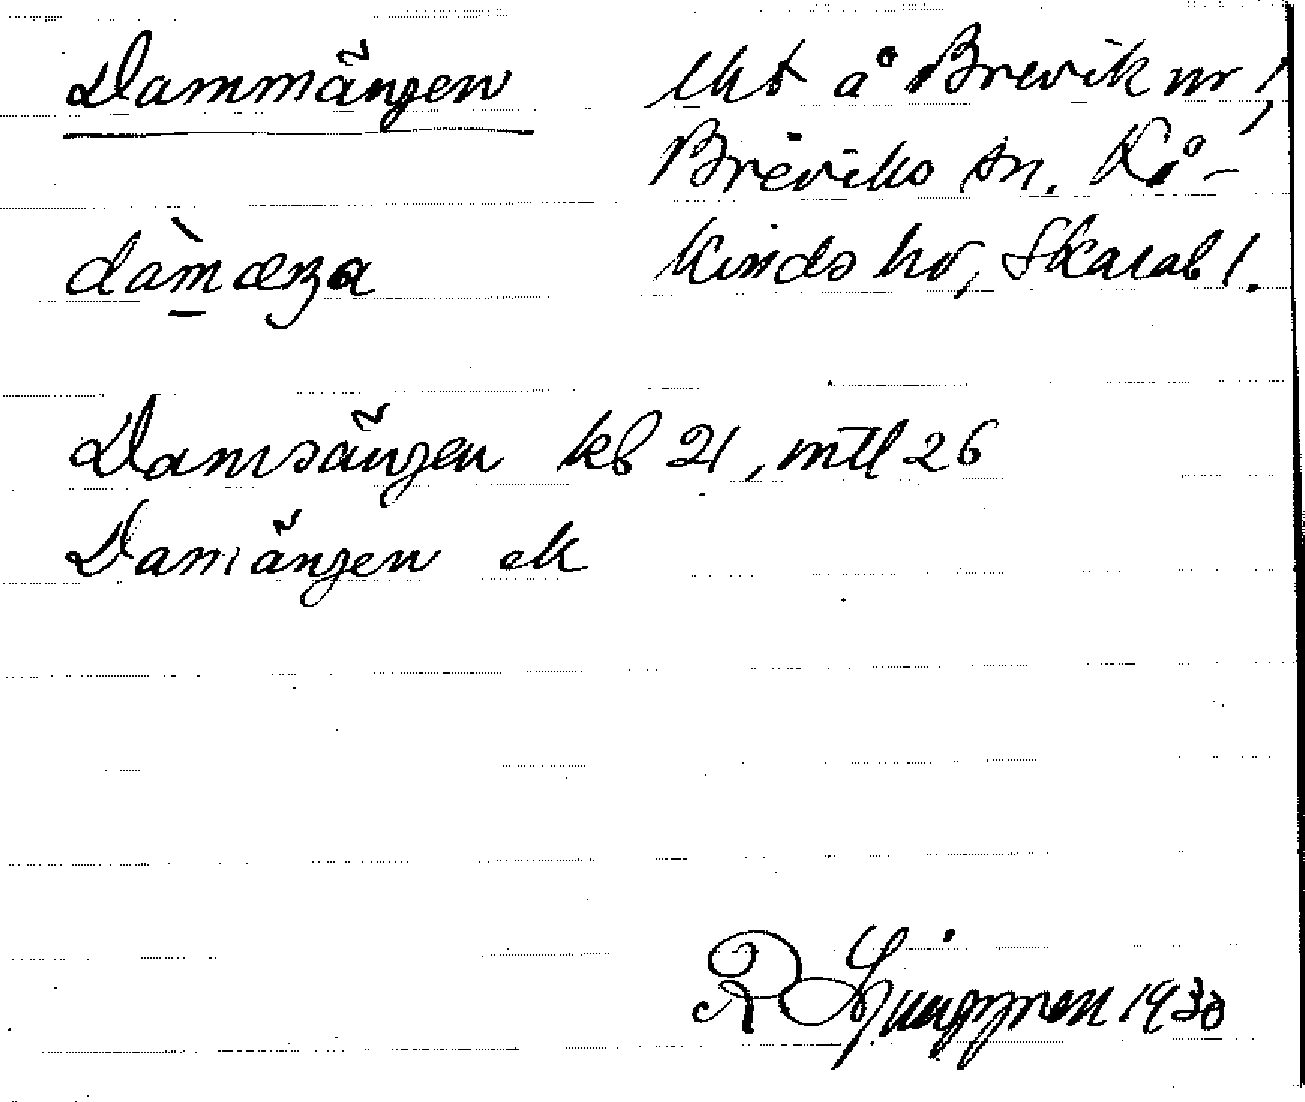 Dammängen
lht å Brevik nr 1,
Breviks sn. Kå-
kinds hd, Skarab l.
dàmæŋa
Damsängen kb 21, mtl 26
Damängen ek
R Ljunggren 1930